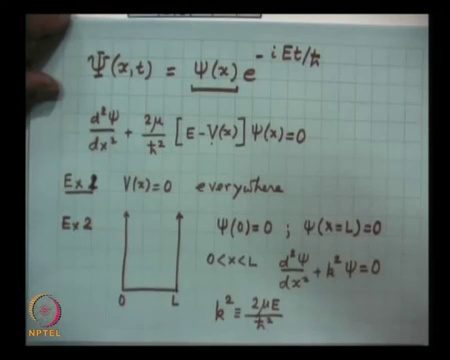 Ψ(x,t) = ψ(x) e^{-iEt/ħ}
d²ψ/dx² + 2μ/ħ² [E - V(x)] ψ(x) = 0
Ex 1 V(x) = 0 everywhere
Ex 2 ψ(0) = 0 ; ψ(x = L) = 0
0 < x < L d²ψ/dx² + k²ψ = 0
0 L k² ≡ 2μE/ħ²
NPTEL